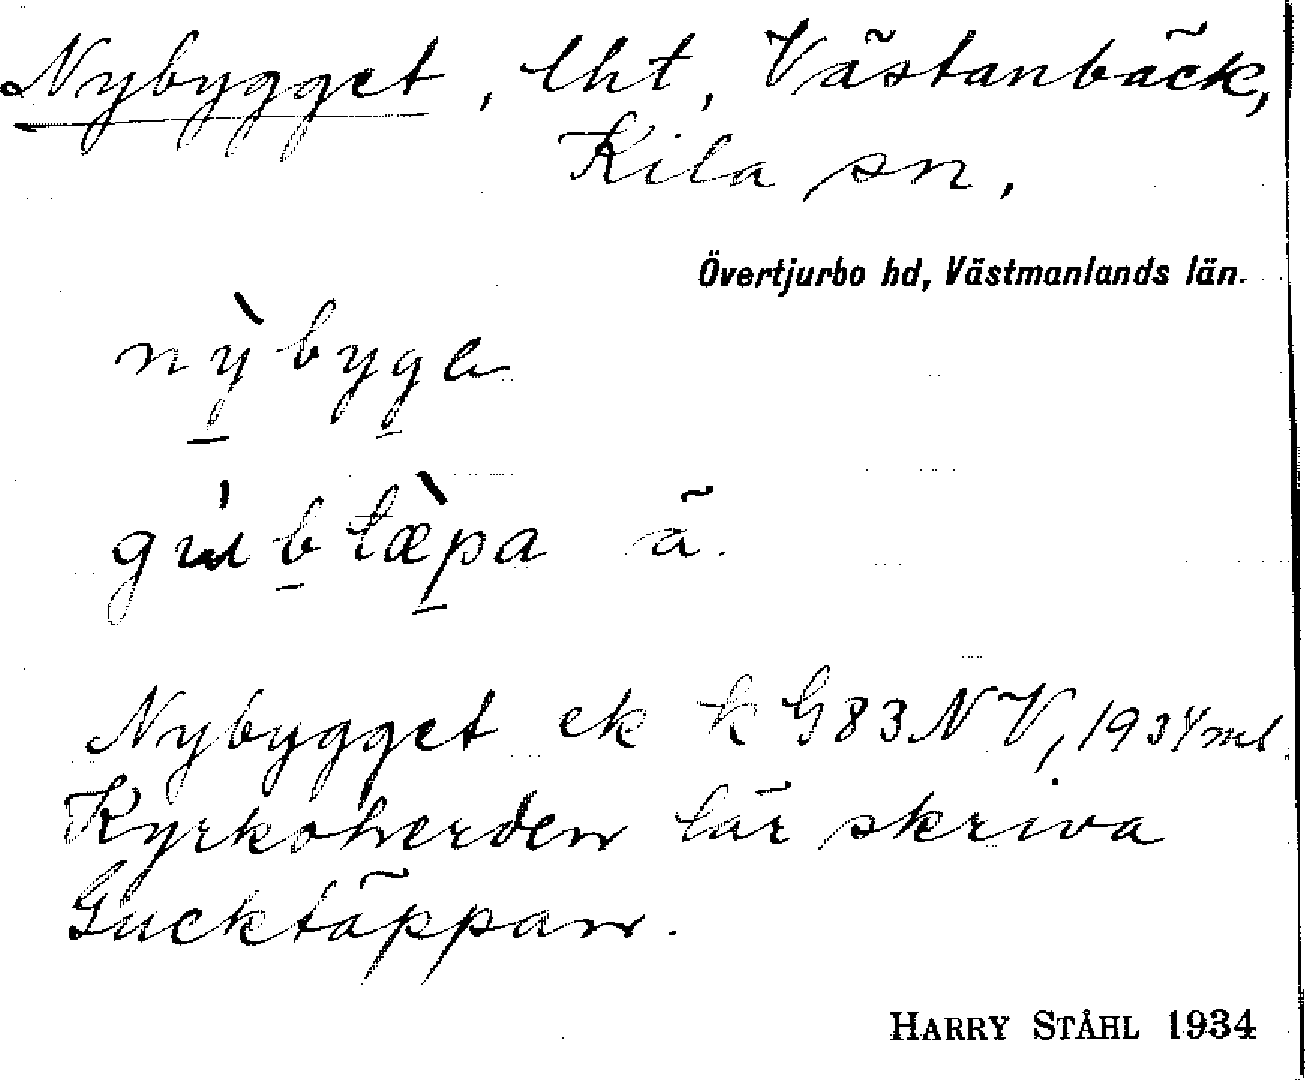 Nybygget, lht, Västanbäck,
Kila sn,
Övertjurbo hd, Västmanlands län.
nỳbyge
ä.
Nybygget ek k G83NV, 1934 ms
Kyrkoherden lär skriva
Gucktäppan.
HARRY STÅHL 1934